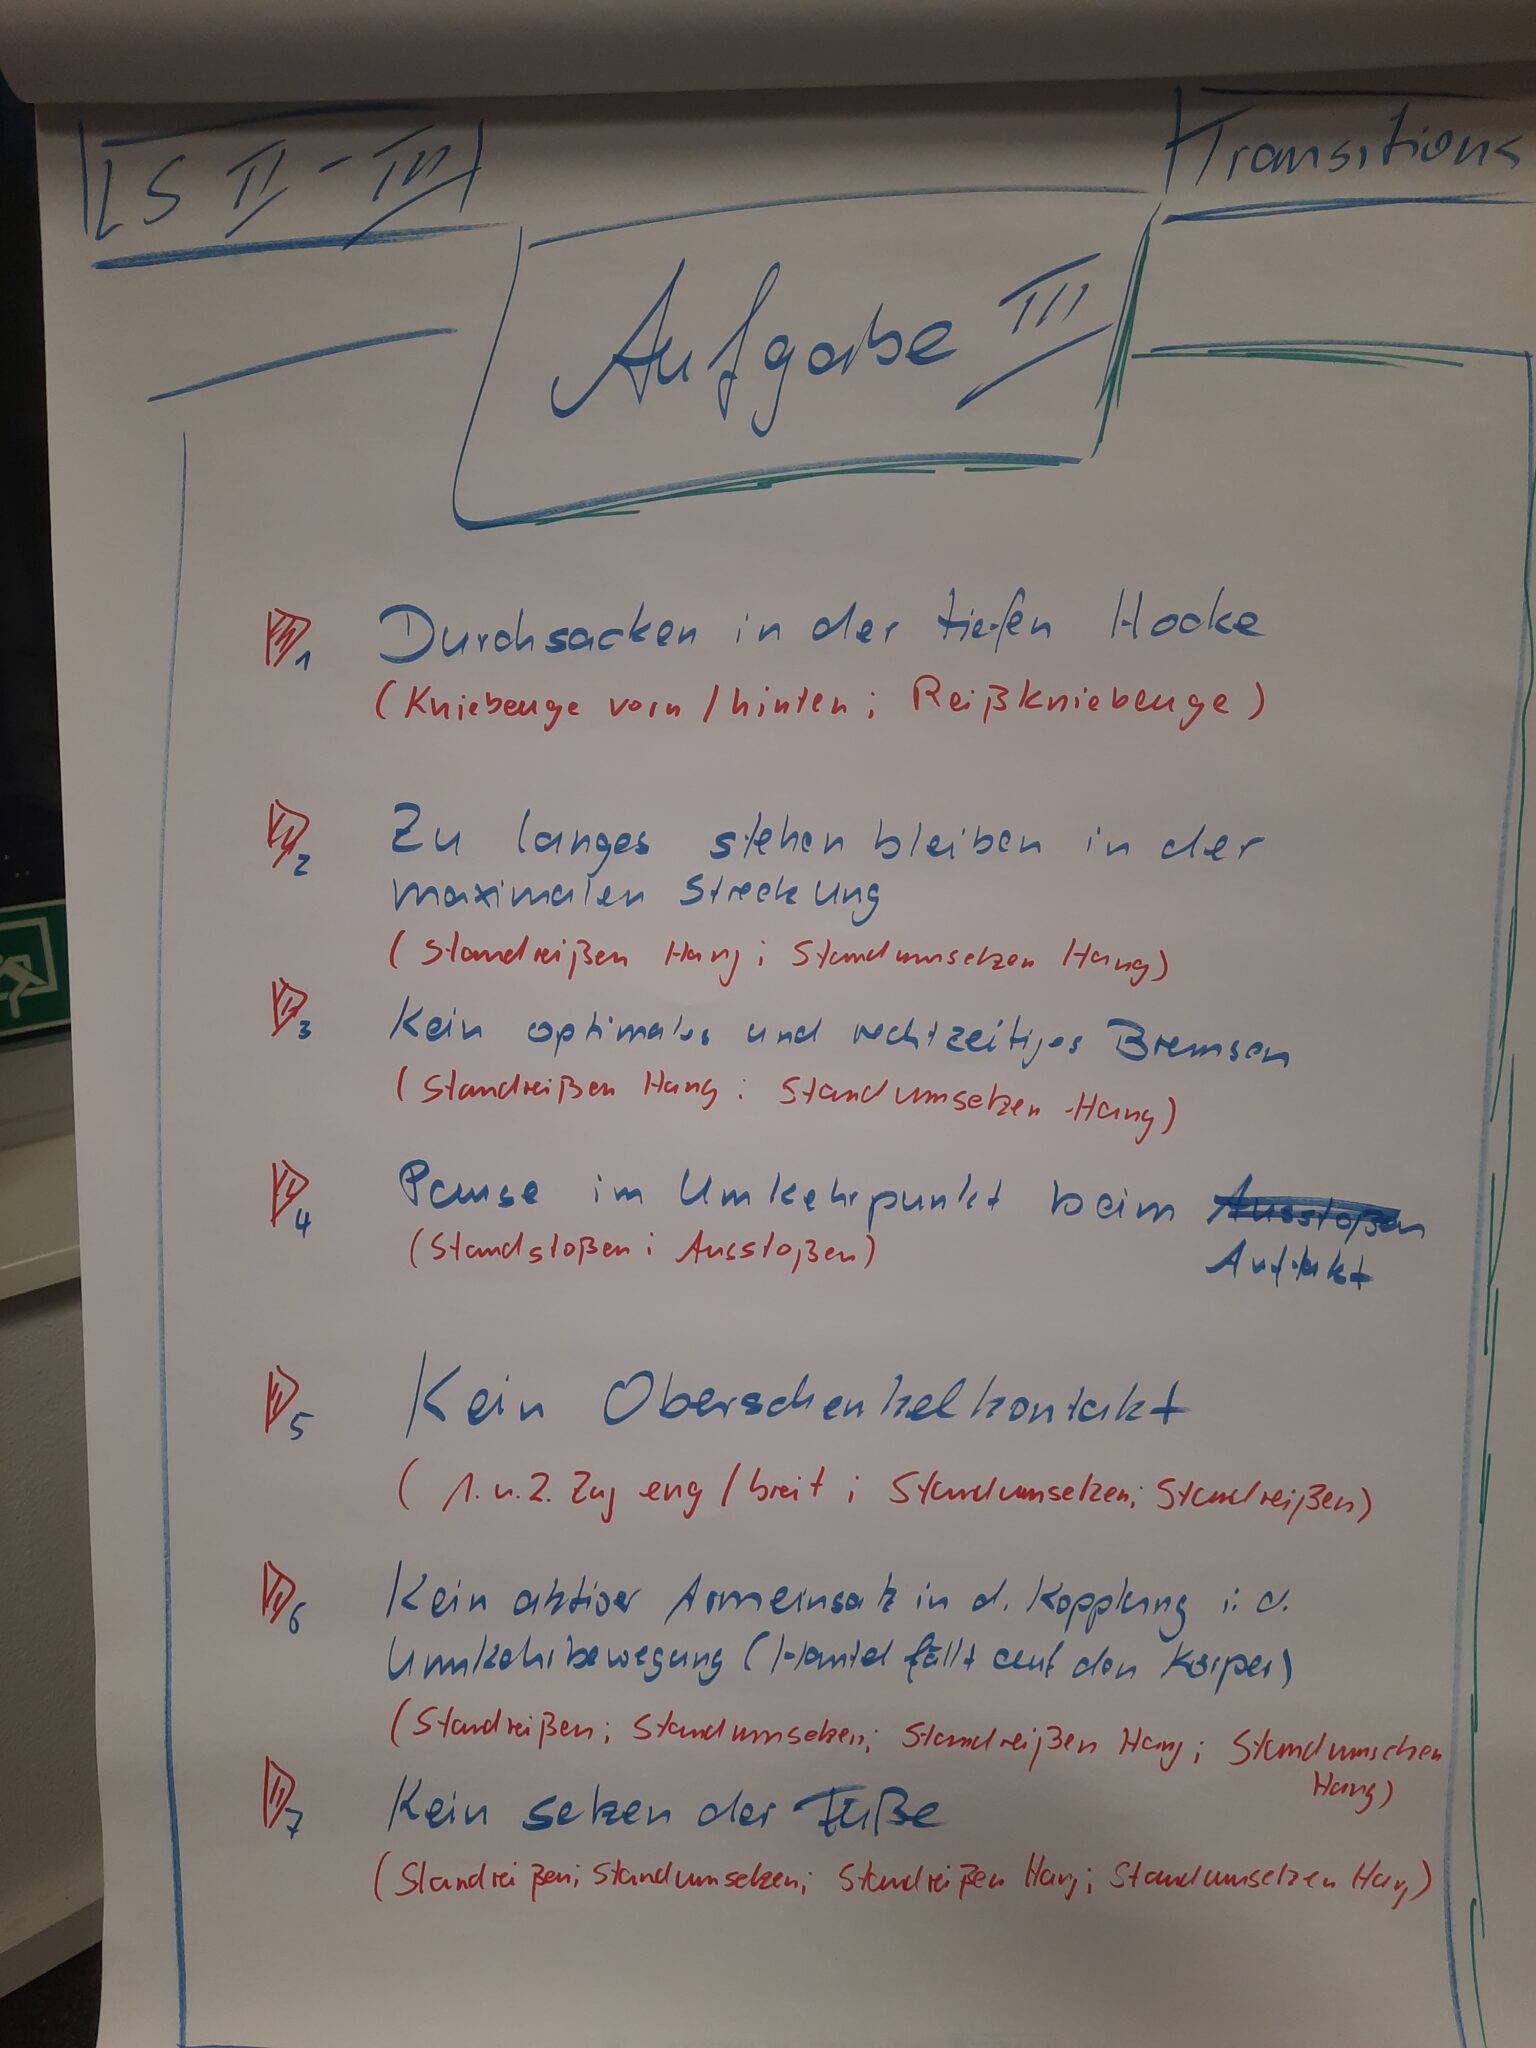 LS II - III
Transitions
Aufgabe III
1 Durchsacken in der tiefen Hocke
(Kniebeuge vorn / hinten ; Reißkniebeuge)
2 Zu langes stehen bleiben in der
maximalen Streckung
(Standreißen Hang ; Standumsetzen Hang)
3 Kein optimales und rechtzeitiges Bremsen
(Standreißen Hang ; Standumsetzen Hang)
4 Pause im Umkehrpunkt beim Ausstoßen
Auftakt
(Standstoßen ; Ausstoßen)
5 Kein Oberschenkelkontakt
(1. u. 2. Zug eng / breit ; Standumsetzen; Standreißen)
6 Kein aktiver Armeinsatz in d. Kopplung i. d.
Umkehrbewegung ( fällt auf den Körper)
(Standreißen; Standumsetzen; Standreißen Hang; Standumsetzen
Hang)
7 Kein setzen der Füße
(Standreißen; Standumsetzen; Standreißen Hang; Standumsetzen Hang)